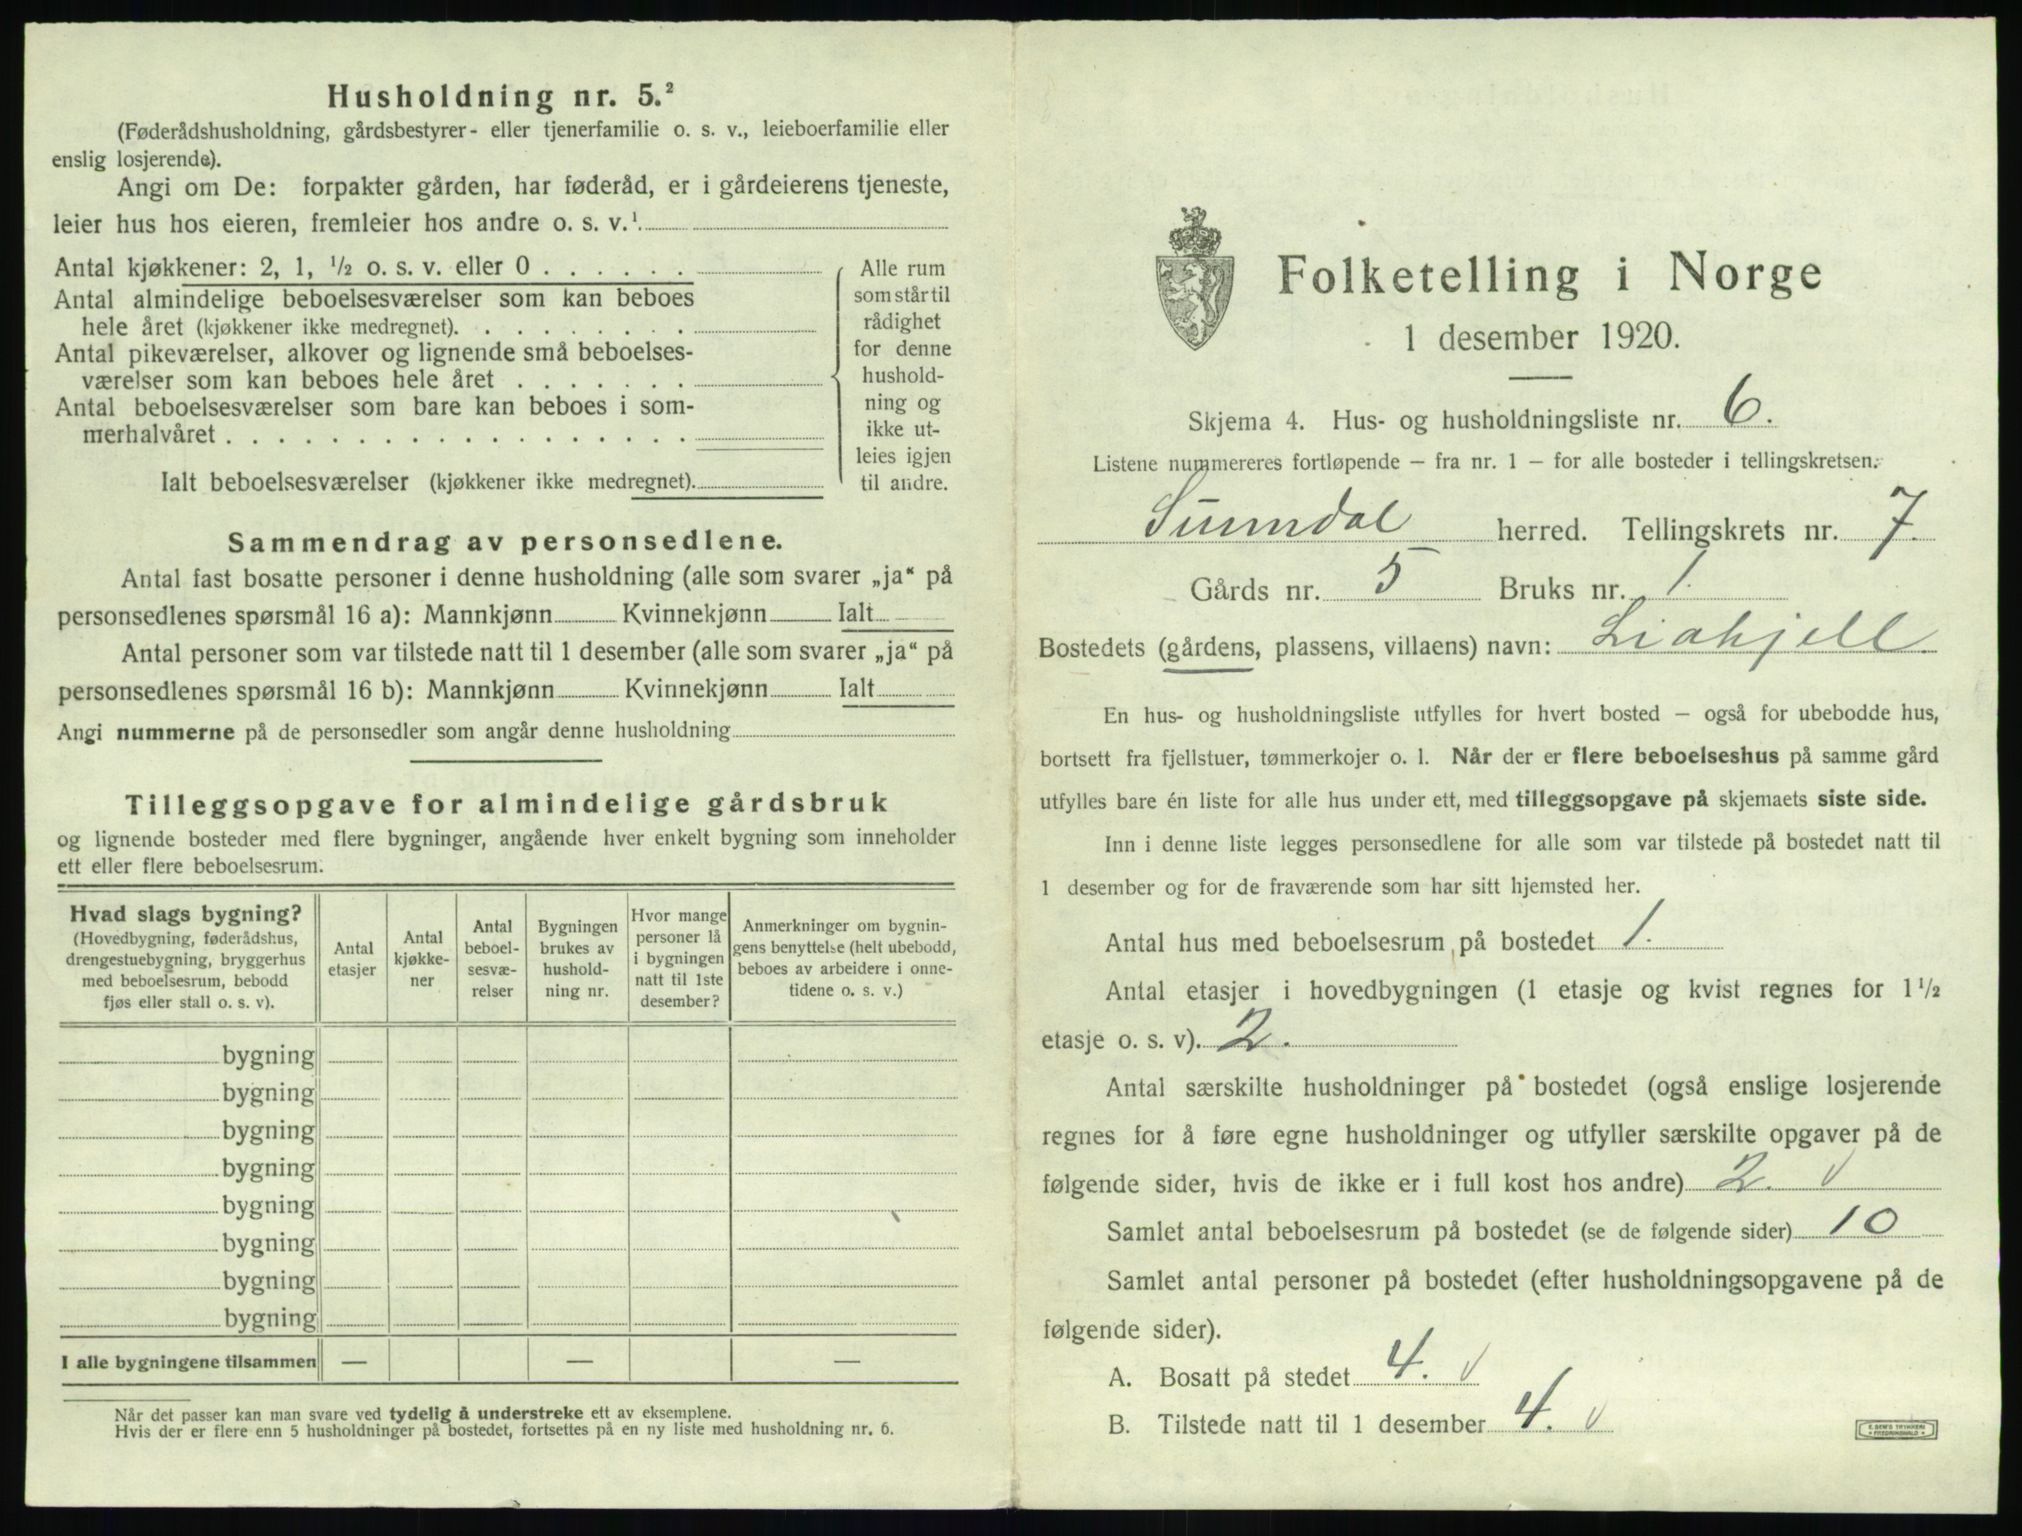 Husholdning nr. 5.²
(Føderådshusholdning, gårdsbestyrer- eller tjenerfamilie o. s. v., leieboerfamilie eller
enslig losjerende).
Angi om De: forpakter gården, har føderåd, er i gårdeierens tjeneste,
leier hus hos eieren, fremleier hos andre o. s. v.¹
Antal kjøkkener: 2, 1, ½ o. s. v. eller 0 . . . . . .
Antal almindelige beboelsesværelser som kan beboes
hele året (kjøkkener ikke medregnet). . . . . . . . .
Antal pikeværelser, alkover og lignende små beboelses-
værelser som kan beboes hele året . . . . . . .
Antal beboelsesværelser som bare kan beboes i som-
merhalvåret . . . . . . . . . . . . . . . .
Ialt beboelsesværelser (kjøkkener ikke medregnet).
Alle rum
som står til
rådighet
for denne
hushold-
ning og
ikke ut-
leies igjen
til andre.
Sammendrag av personsedlene.
Antal fast bosatte personer i denne husholdning (alle som svarer „ja“ på
personsedlenes spørsmål 16 a): Mannkjønn Kvinnekjønn Ialt
Antal personer som var tilstede natt til 1 desember (alle som svarer „ja“ på
personsedlenes spørsmål 16 b): Mannkjønn Kvinnekjønn Ialt
Angi nummerne på de personsedler som angår denne husholdning
Tilleggsopgave for almindelige gårdsbruk
og lignende bosteder med flere bygninger, angående hver enkelt bygning som inneholder
ett eller flere beboelsesrum.
Hvad slags bygning?
(Hovedbygning, føderådshus,
drengestuebygning, bryggerhus
med beboelsesrum, bebodd
fjøs eller stall o. s. v).
Antal
etasjer
Antal
kjøkke-
ner
Antal
beboel-
sesvæ-
relser
Bygningen
brukes av
hushold-
ning nr.
Hvor mange
personer lå
i bygningen
natt til 1ste
desember?
Anmerkninger om bygnin-
gens benyttelse (helt ubebodd,
beboes av arbeidere i onne-
tidene o. s. v.)
bygning
bygning
bygning
bygning
bygning
bygning
bygning
bygning
I alle bygningene tilsammen — — —
Når det passer kan man svare ved tydelig å understreke ett av eksemplene.
Hvis der er flere enn 5 husholdninger på bostedet, fortsettes på en ny liste med husholdning nr. 6.
Folketelling i Norge
1 desember 1920.
Skjema 4. Hus- og husholdningsliste nr. 6.
Listene nummereres fortløpende – fra nr. 1 – for alle bosteder i tellingskretsen.
Surndal herred. Tellingskrets nr. 7.
Gårds nr. 5 Bruks nr. 1.
Bostedets (gårdens, plassens, villaens) navn: Liahjell
En hus- og husholdningsliste utfylles for hvert bosted – også for ubebodde hus,
bortsett fra fjellstuer, tømmerkojer o. l. Når der er flere beboelseshus på samme gård
utfylles bare én liste for alle hus under ett, med tilleggsopgave på skjemaets siste side.
Inn i denne liste legges personsedlene for alle som var tilstede på bostedet natt til
1 desember og for de fraværende som har sitt hjemsted her.
Antal hus med beboelsesrum på bostedet 1.
Antal etasjer i hovedbygningen (1 etasje og kvist regnes for 1½
etasje o. s. v). 2.
Antal særskilte husholdninger på bostedet (også enslige losjerende
regnes for å føre egne husholdninger og utfyller særskilte opgaver på de
følgende sider, hvis de ikke er i full kost hos andre) 2. v
Samlet antal beboelsesrum på bostedet (se de følgende sider) 10
Samlet antal personer på bostedet (efter husholdningsopgavene på de
følgende sider).
A. Bosatt på stedet 4. v
B. Tilstede natt til 1 desember 4. v